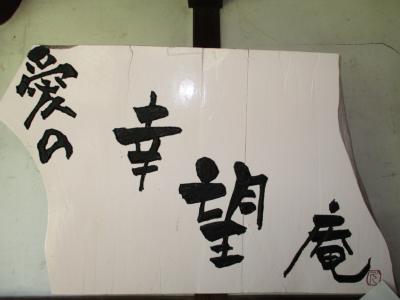 愛の
幸
望
庵